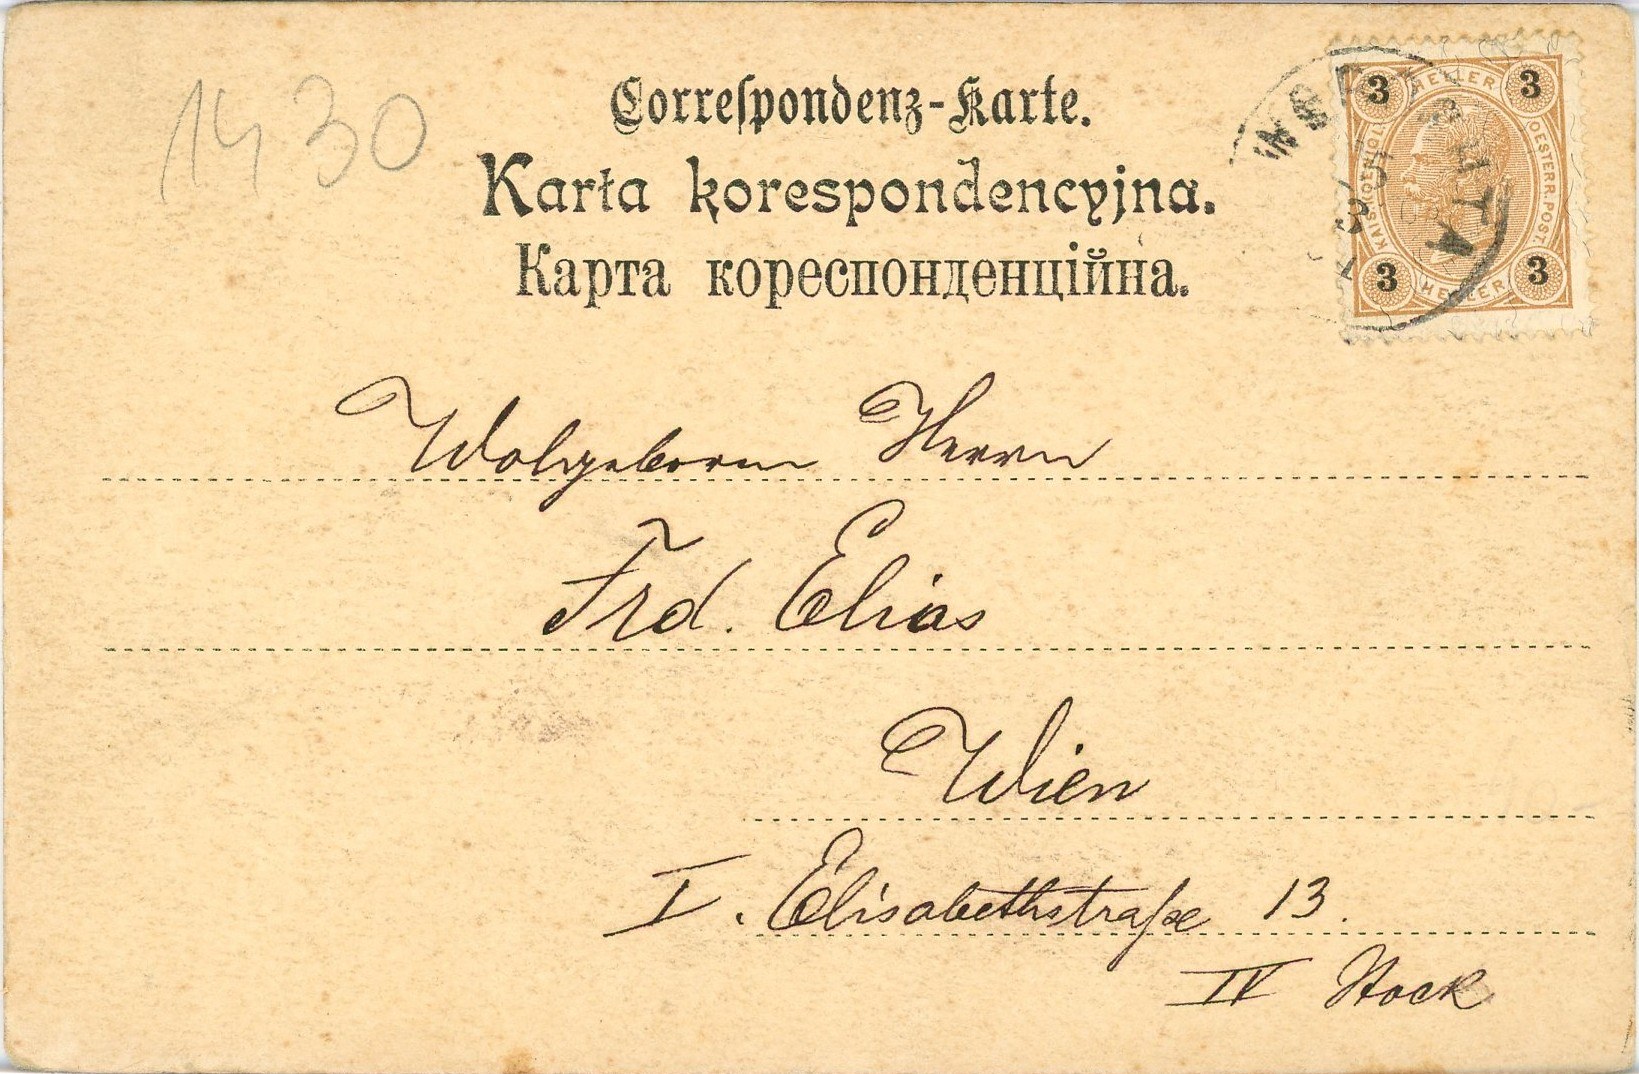 1430
Correspondenz-Karte.
Karta korespondencyjna.
Карта кореспонденційна.
3 HELLER 3
KAIS. KOENIGL. OESTERR. POST.
3 HELLER 3
Wolgebornen Herrn
Frd. Elias
Wien
I. Elisabethstraße 13.
IV Stock